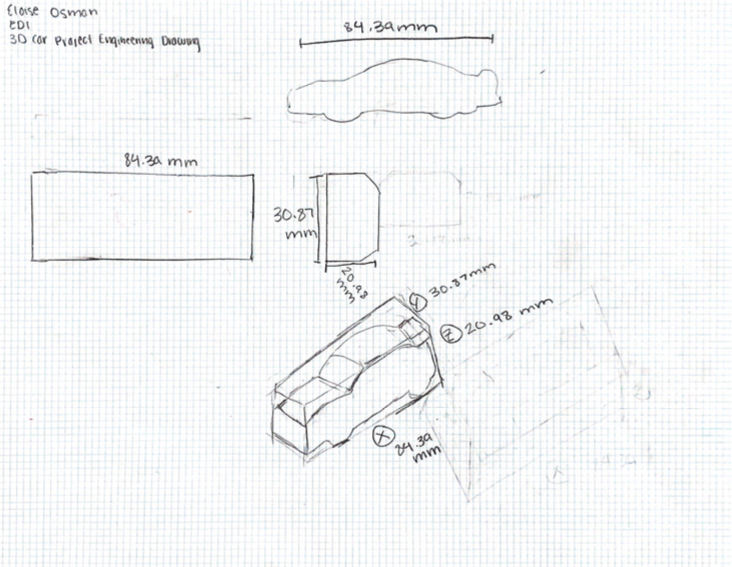 Eloise Osmon
EDI
3D Car Project Engineering Drawing
84.39mm
84.39 mm
30.87
mm
20.98
mm
Y 30.87mm
Z 20.98 mm
X 84.39
mm